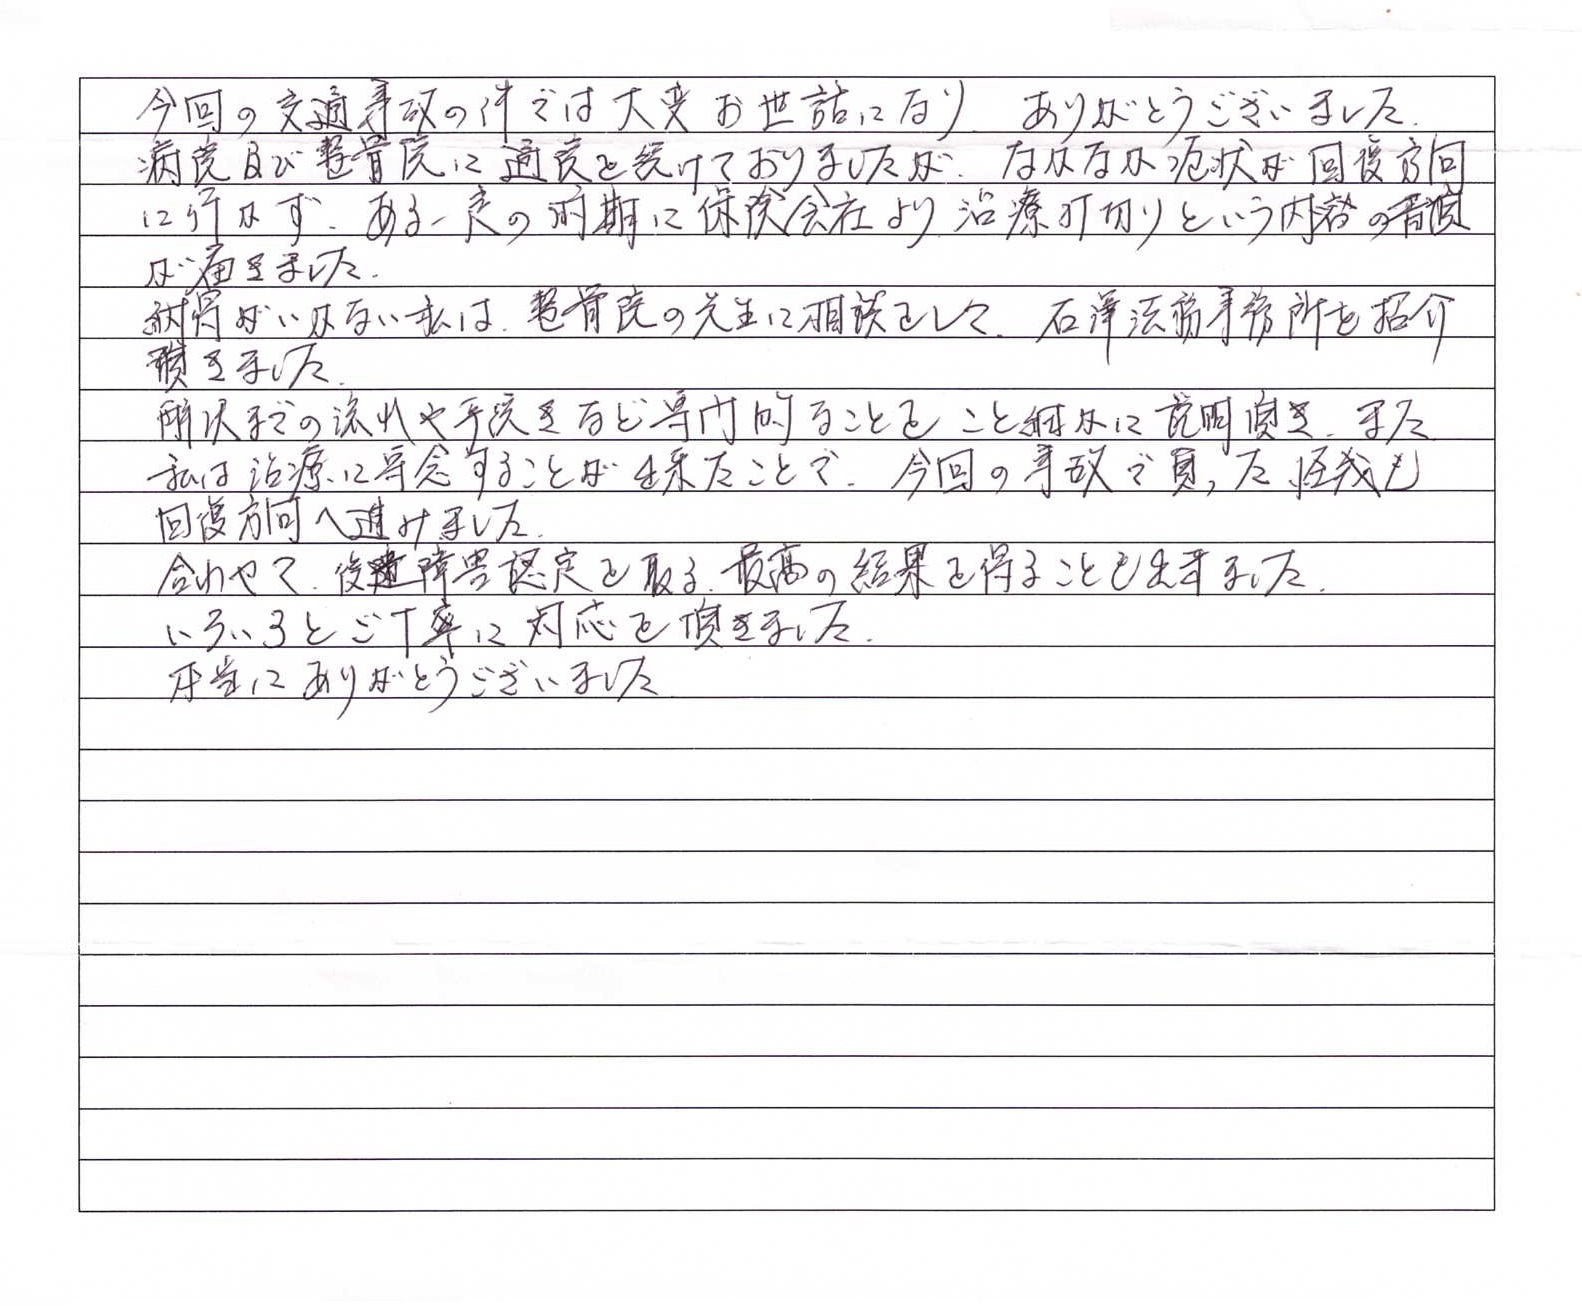 今回の交通事故の件では大変お世話になり、ありがとうございました。
病院及び整骨院に通院を続けておりましたが、なかなか症状が回復方向
に行かず、ある一定の時期に保険会社より治療打切りという内容の書面
が届きました。
納得がいかない私は、整骨院の先生に相談をして、石澤法務事務所を紹介
頂きました。
解決までの流れや手続きなど専門的なことをこと細かに説明頂き、また
私は治療に専念することが出来たことで、今回の事故で負った怪我も
回復方向へ進みました。
合わせて、後遺障害認定を取る、最高の結果を得ることも出来ました。
いろいろとご丁寧に対応を頂きました。
本当にありがとうございました